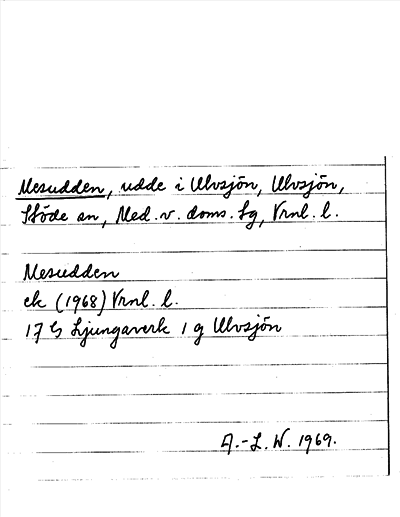 Mesudden, udde i Ulvsjön, Ulvsjön,
Stöde sn, Med.v.doms.sg, Vrnl.l.
Mesudden
ek (1968) Vrnl.l.
17 G Ljungaverk 1 g Ulvsjön
A.-L. W. 1969.